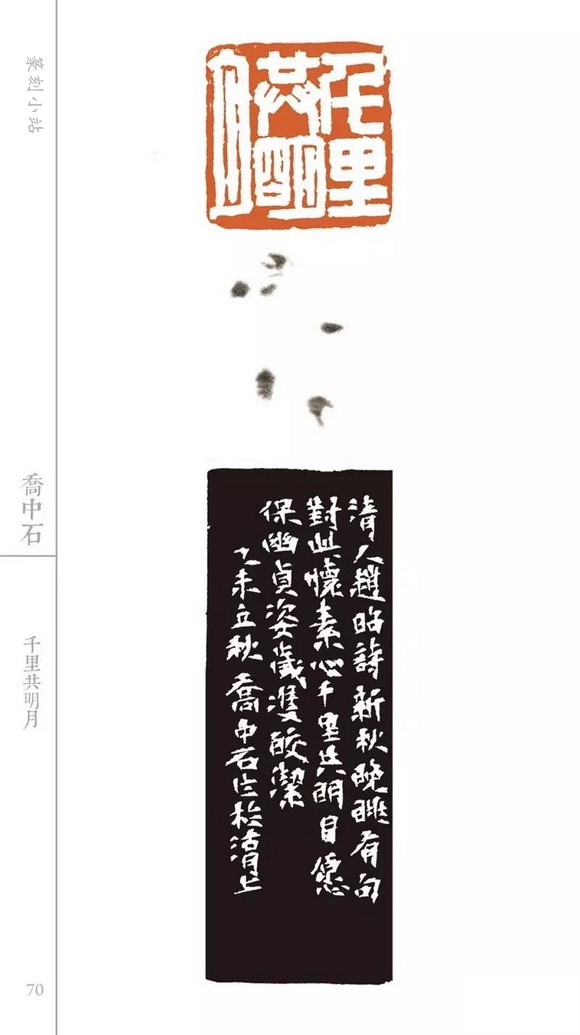 篆刻小站
喬中石
千里共明月
70
千里
共明
月
清人趙昭詩新秋晚眺有句
對此懷素心千里共明月願
保幽貞姿歲寒雙皎潔
乙未立秋喬中石作於沽淯上